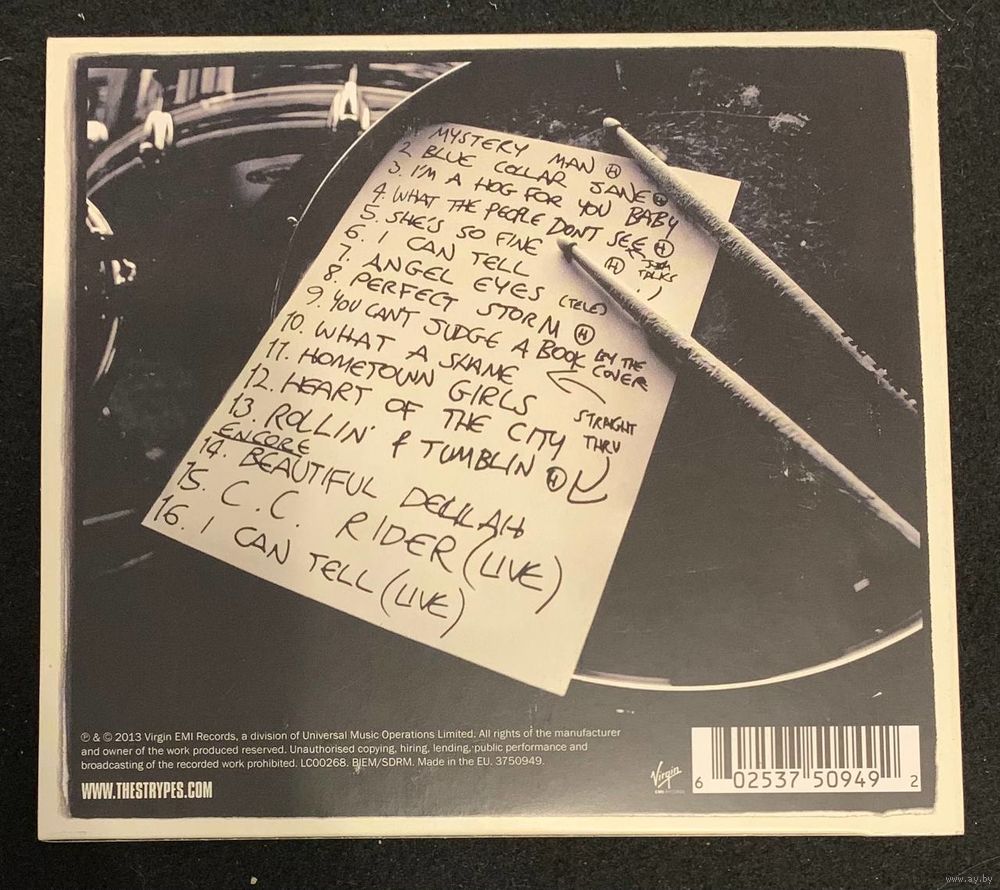 MYSTERY MAN Ⓗ
2. BLUE COLLAR JANE Ⓗ
3. I'M A HOG FOR YOU BABY
4. WHAT THE PEOPLE DON'T SEE Ⓗ
5. SHE'S SO FINE Ⓗ
TALKS
6. I CAN TELL
7. ANGEL EYES (TELE)
8. PERFECT STORM Ⓗ
9. YOU CAN'T JUDGE A BOOK BY THE
COVER
10. WHAT A SHAME
STRAIGHT
THRU
11. HOMETOWN GIRLS
12. HEART OF THE CITY
13. ROLLIN' & TUMBLIN Ⓗ
ENCORE
14. BEAUTIFUL DELILAH
15. C.C. RIDER (LIVE)
16. I CAN TELL (LIVE)
℗ & © 2013 Virgin EMI Records, a division of Universal Music Operations Limited. All rights of the manufacturer
and owner of the work produced reserved. Unauthorised copying, hiring, lending, public performance and
broadcasting of the recorded work prohibited. LC00268. BIEM/SDRM. Made in the EU. 3750949.
WWW.THESTRYPES.COM
Virgin
EMI RECORDS
6 02537 50949 2
www.ay.by